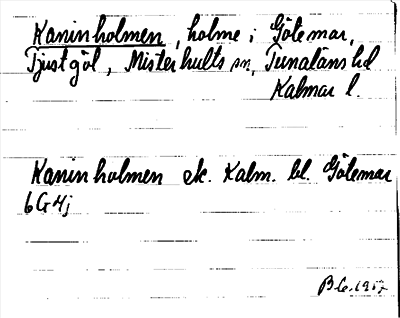 Kaninholmen, holme i Götemar,
Tjustgöl, Misterhults sn, Tunaläns hd
Kalmar l.
Kaninholmen ek. Kalm. bl. Götemar
6G4j